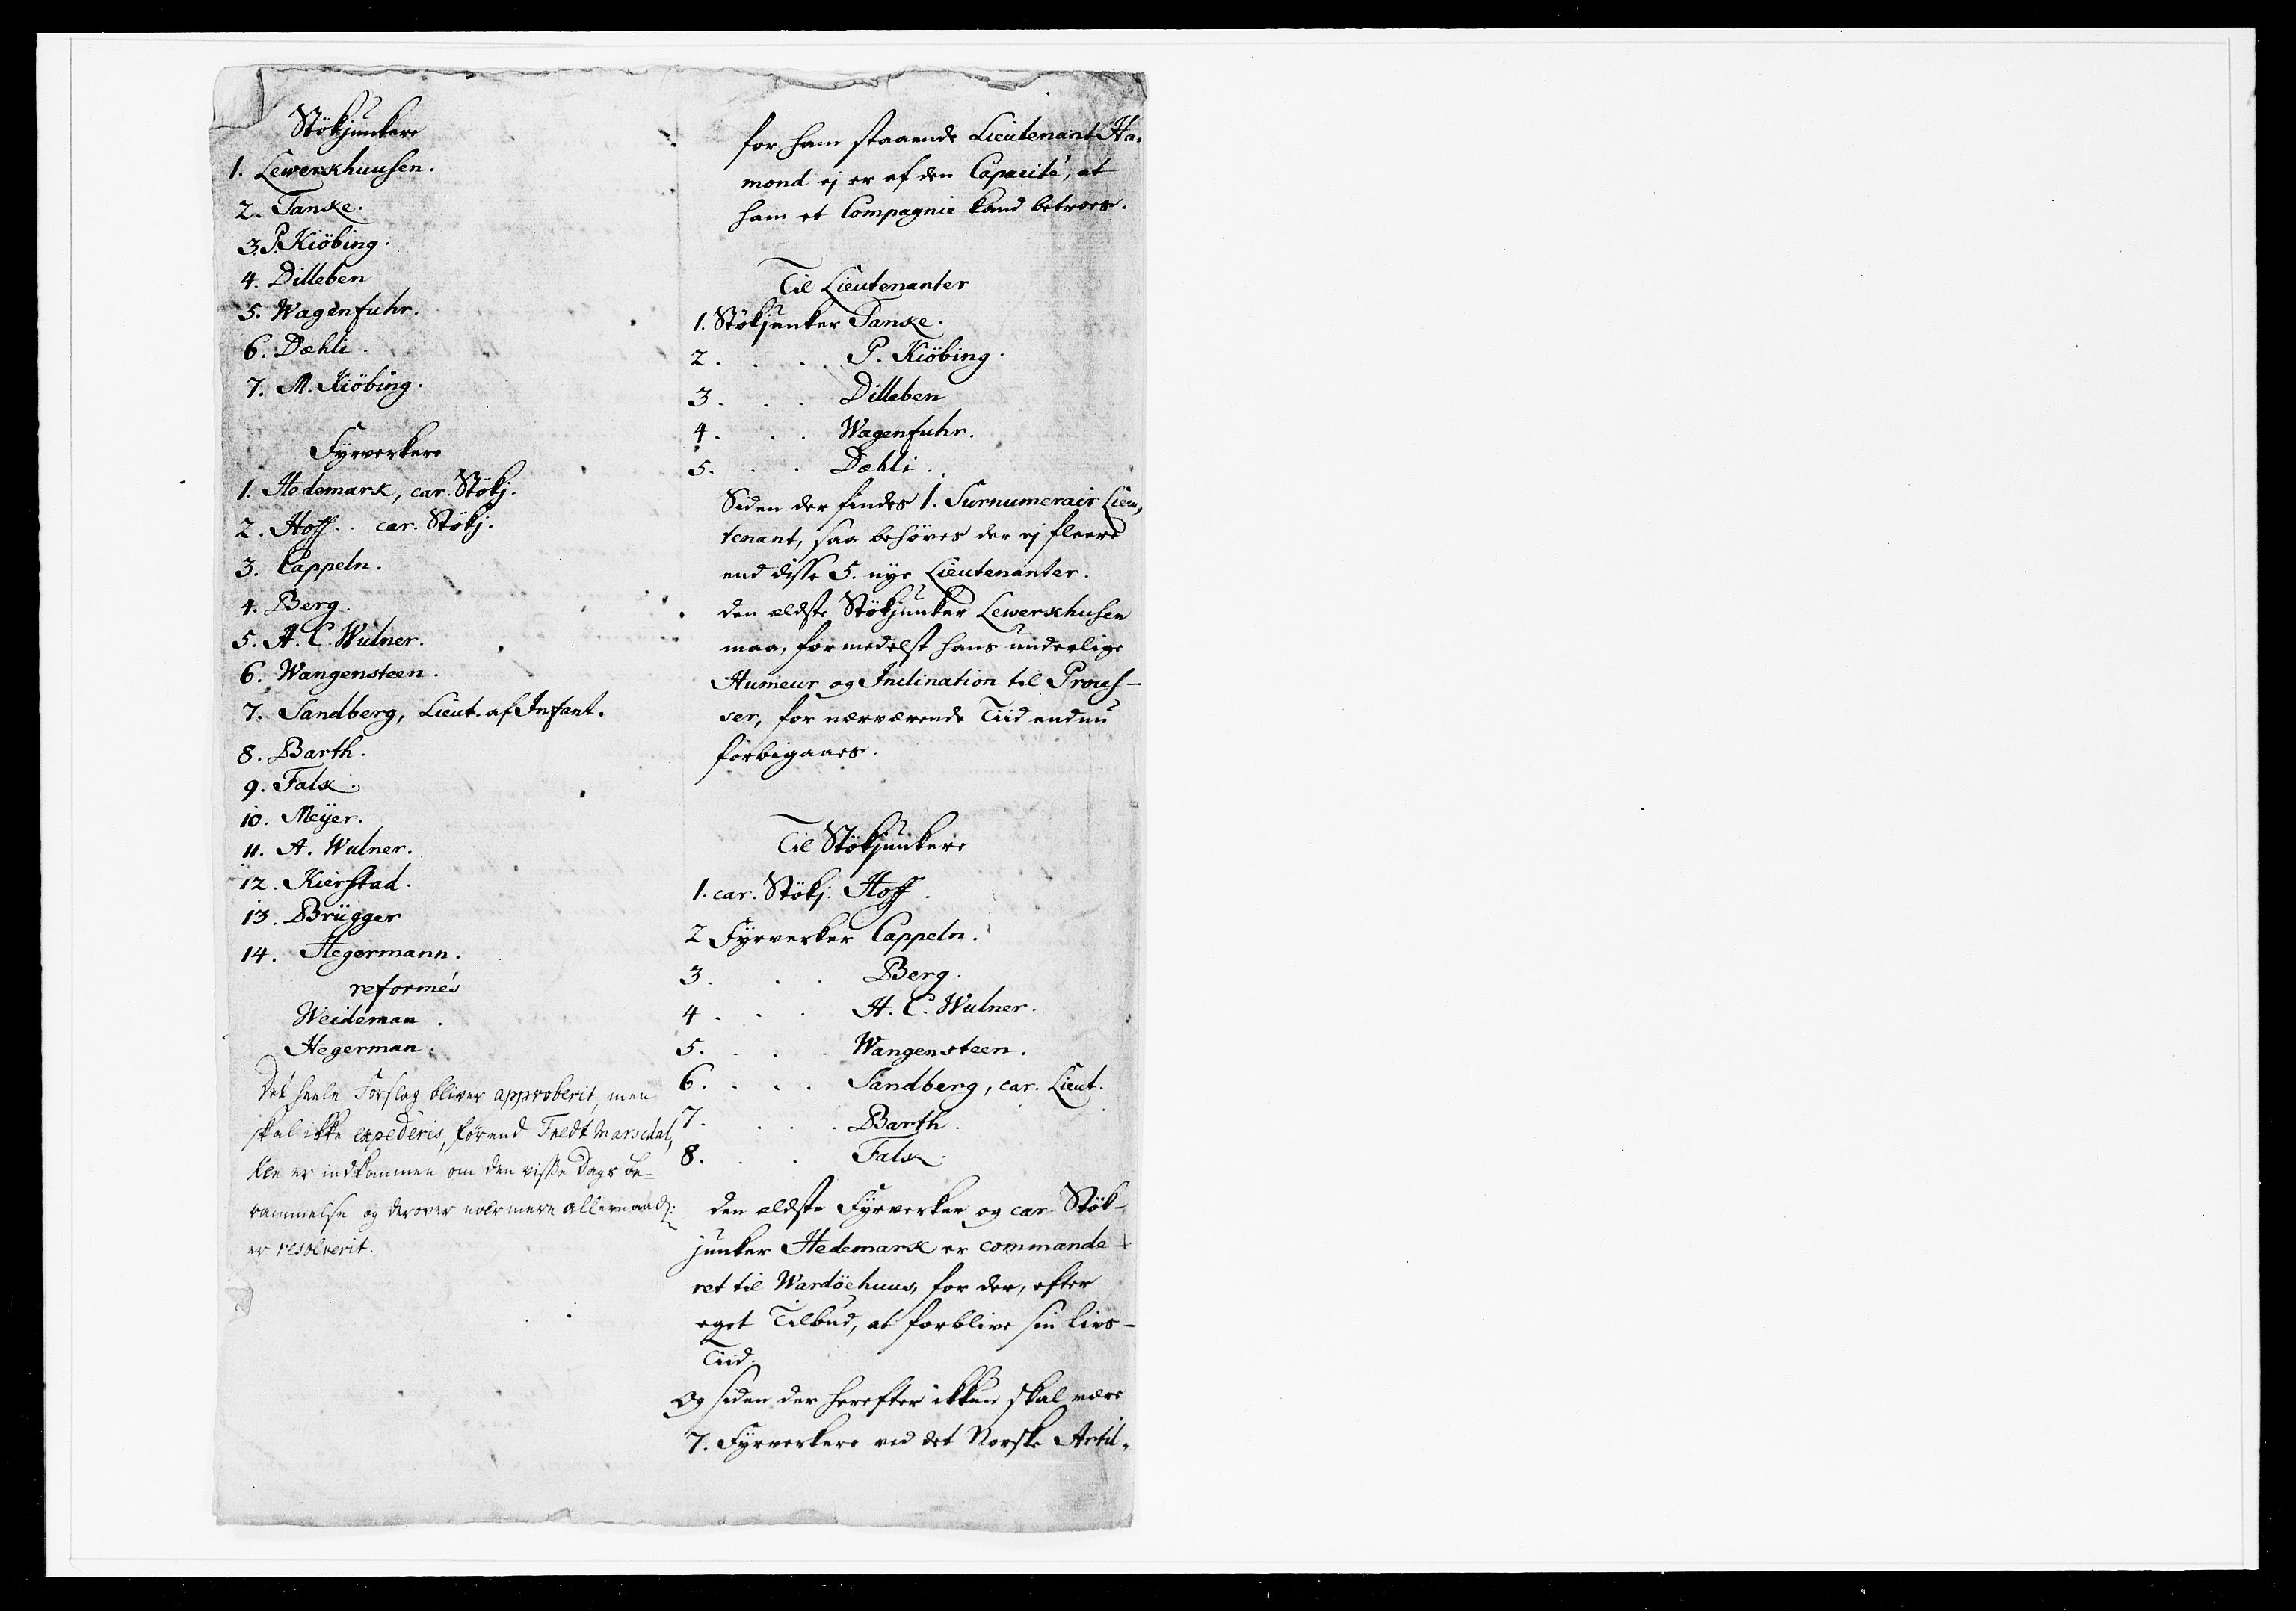 Stökjunkere
1. Lewerkhuusen.
2. Tanke.
3. P. Kiöbing.
4. Dilleben
5. Wagenfuhr.
6. Dæhli.
7. M. Kiöbing.
Fyrverkere
1. Hedemark, car. Stökj.
2. Hoff. car. Stökj.
3. Cappeln.
4. Berg.
5. A. C. Wulner.
6. Wangensteen.
7. Sandberg, Lieut. af Infant.
8. Barth.
9. Falk.
10. Meÿer.
11. A. Wulner.
12. Kierstad.
13. Brügger
14. Hegermann.
reformés
Weideman.
Hegerman.
Det heele Forslag bliver approberit, men
skal ikke expederis, förend Feldt Marschal,
len er indkommen om den visse Dags be=
rammelse og derover nærmere allernaad:
er resolverit.
for ham staaende Lieutenant Ha-
mond ej er af den Capacité, at
ham et Compagnie kand betroes.
Til Lieutenanter
1. Stökjunker Tanke.
2. . . . P. Kiöbing.
3. . . Dilleben
4. . . Wagenfuhr.
5. . . Dæhli.
Siden der findes 1. Surnumerair Lieu,
tenant, saa behöves der ej fleere
end disse 5. nye Lieutenanter.
den ældste Stökjunker Lewerkhusen
maa, formedelst hans underlige
Humeur og Inclination til Proces-
ser, for nærværende Tiid endnu
forbigaaes.
Til Stökjunkere
1. car. Stökj. Hoff.
2 Fyrverker Cappeln.
3. . . Berg.
4 . . . A. C. Wulner.
5. . . . Wangensteen.
6. . . . Sandberg, car. Lieut.
7. . . . Barth.
8. . . Falk.
den ældste Fyrverker og car. Stök-
junker Hedemark er commande-
ret til Wardöehuus, for der, efter
eget Tilbud, at forblive sin Livs-
Tiid.
Og siden der herefter ikkun skal være
7. Fyrverkere ved det Norske Artil-